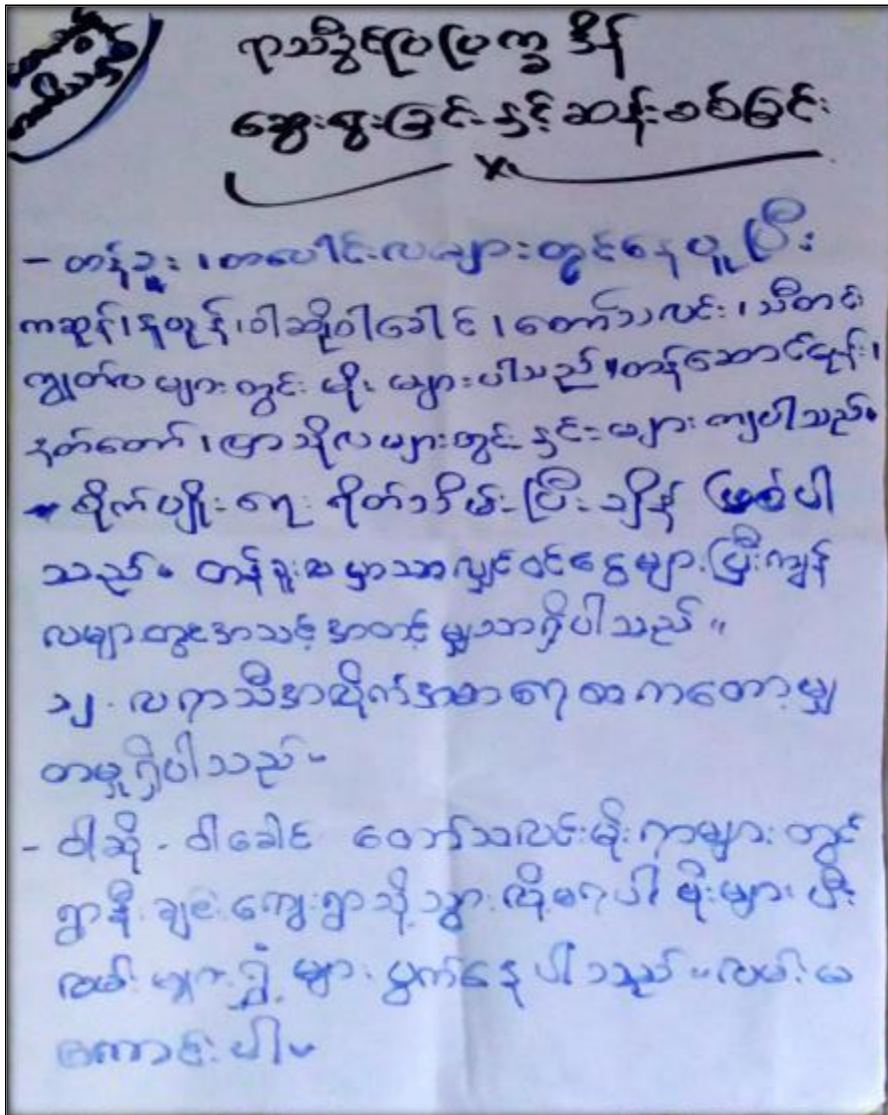 ရာသီခွင်ပြပြက္ခဒိန်
ဆွေးနွေးခြင်းနှင့်ဆန်းစစ်ခြင်း
- တန်ခူး၊တပေါင်းလများတွင်နေပူပြီး
ကဆုန်၊နယုန်၊ဝါဆိုဝါခေါင်၊တော်သလင်း၊သီတင်း
ကျွတ်လများတွင်းမိုးများပါသည်။တန်ဆောင်မုန်း၊
နတ်တော်၊ပြာသိုလများတွင်းနှင်းများကျပါသည်။
- စိုက်ပျိုးရေးရိတ်သိမ်းပြီးချိန်ဖြစ်ပါ
သည်။ တန်ခူးလမှာသာလျှင်ဝင်ငွေများပြီးကျန်
လများတွင်အသင့်အတင့်မျှသာရှိပါသည်။
၁၂-လရာသီအလိုက်အစာရေစာကတော့မျှ
တမှုရှိပါသည်။
- ဝါဆို-ဝါခေါင် တော်သလင်းမိုးကာများတွင်
ရွာနီးချင်းကျေးရွာသို့သွားလို့မရပါမိုးများပြီး
လမ်းများရွှံ့များပွက်နေပါသည်။လမ်းမ
ကောင်းပါ။